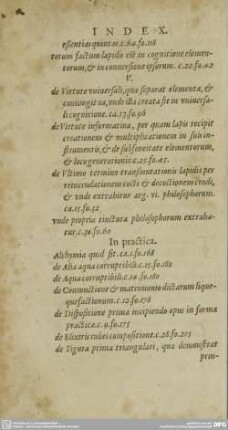 INDEX.
essentias quintas.c.64.fo.118
totum factum lapidis est in cognitione elemen-
torum,& in conuersione ipsorum. c.22.fo.42
V.
de Virtute vniuersali, qua separat elementa, &
coniungit ea, vnde ista creata sit in vniuersa-
li cognitione. ca.13.fo.96
de Virtute informatiua, per quam lapis recipit
creationem & multiplicationem in suis in-
strumentis, & de subseneitate elementorum,
& loco generationis.c.25.fo.45.
de Vltimo termino transmutationis lapidis per
reincrudationem cocti & decoctionem crudi,
& vnde extrabitur arg. vi. philosophorum.
ca.15.fo.32
vnde propria tinctura philosophorum extraba-
tur.c.30.fo.60
In practica.
Alchymia quid sit.ca.1.fo.168
de Alia aqua corruptibili.c.15.fo.180
de Aqua corruptibili.c.14.fo.180
de Coniunctione & matrimonio dictarum lique-
quefactionum.c.12.fo.178
de Dispositione prima incipiendo opus in forma
practica.c.9.fo.175
de Elixiris rubei compositione.c.28.fo.205
de Figura prima triangulari, qua demonstrat
prin-